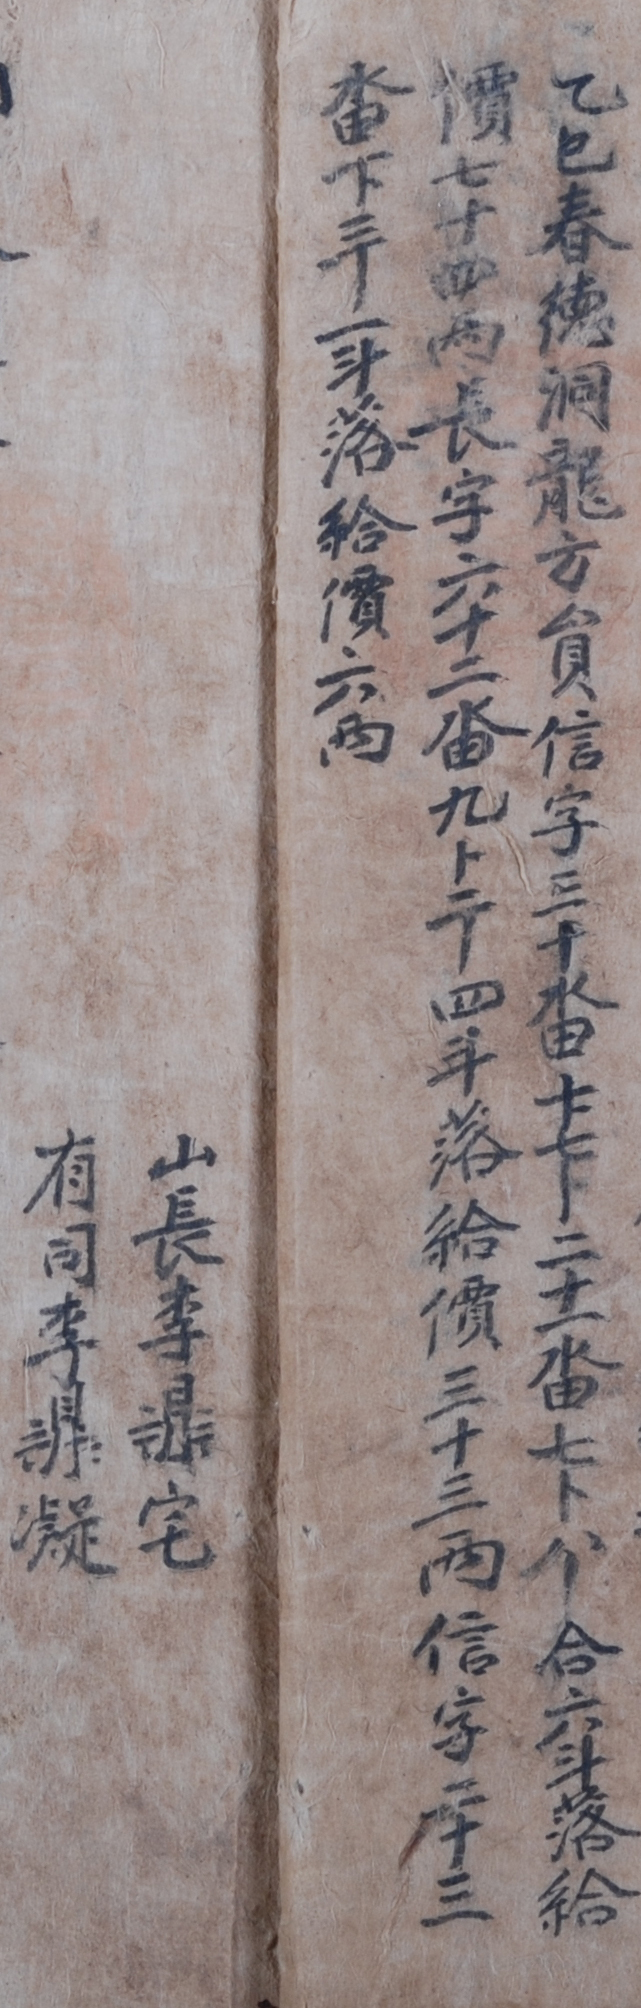 乙巳春德洞龍方員信字三十畓十卜七卜二十一畓七卜八卜合六斗落給
價七十四兩長字六十二畓九卜二卜四斗落給價三十三兩信字二十三
畓下三卜一斗落給價六兩
山長李鼎宅
有司李鼎凝